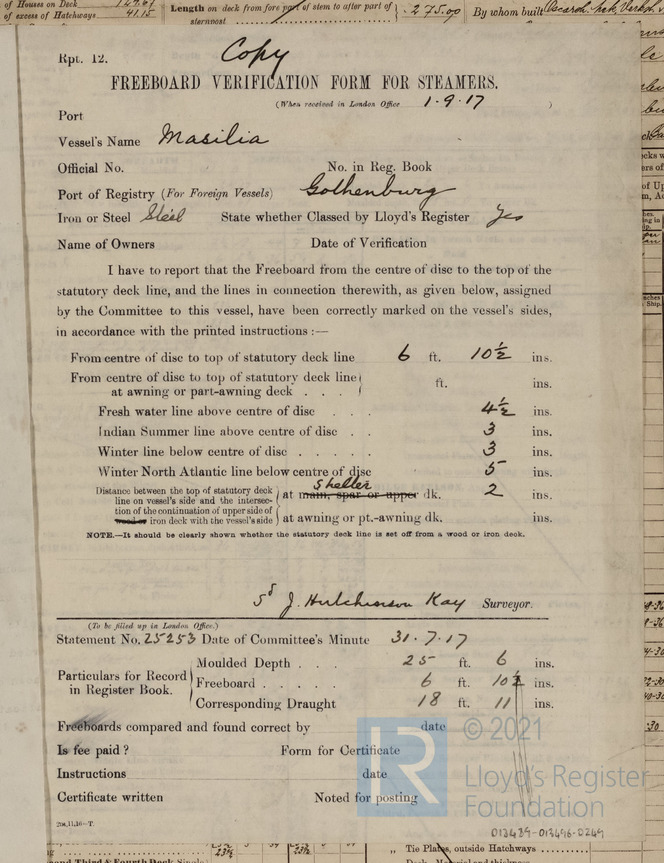 of Houses on Deck 129.67
of excess of Hatchways 41.15
Length on deck from fore part of stem to after part of sternpost 275.00
By whom built
Copy
Rpt. 12.
FREEBOARD VERIFICATION FORM FOR STEAMERS.
(When received in London Office 1.9.17 )
Port
Vessel's Name Masilia
Official No. No. in Reg. Book
Port of Registry (For Foreign Vessels) Gothenburg
Iron or Steel Steel State whether Classed by Lloyd's Register Yes
Name of Owners Date of Verification
I have to report that the Freeboard from the centre of disc to the top of the
statutory deck line, and the lines in connection therewith, as given below, assigned
by the Committee to this vessel, have been correctly marked on the vessel's sides,
in accordance with the printed instructions :—
From centre of disc to top of statutory deck line 6 ft. 10½ ins.
From centre of disc to top of statutory deck line
at awning or part-awning deck . . . ft. ins.
Fresh water line above centre of disc . . . 4½ ins.
Indian Summer line above centre of disc . . 3 ins.
Winter line below centre of disc . . . . . 3 ins.
Winter North Atlantic line below centre of disc 5 ins.
Shelter
Distance between the top of statutory deck
line on vessel's side and the intersec- at main, spar or upper dk. 2 ins.
tion of the continuation of upper side of
wood or iron deck with the vessel's side at awning or pt.-awning dk. ins.
NOTE.—It should be clearly shown whether the statutory deck line is set off from a wood or iron deck.
Sd J. Hutchinson Kay Surveyor.
(To be filled up in London Office.)
Statement No. 25253 Date of Committee's Minute 31.7.17
Particulars for Record
in Register Book.
Moulded Depth . . . 25 ft. 6 ins.
Freeboard . . . . . 6 ft. 10½ ins.
Corresponding Draught 18 ft. 11 ins.
Freeboards compared and found correct by date
Is fee paid ? Form for Certificate
Instructions date
Certificate written Noted for posting
2m,11,16—T.
© 2021
LR
Lloyd's Register
Foundation
013489-013496-0249
Tie Plates, outside Hatchways